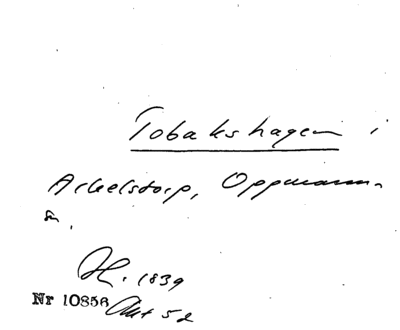 Tobakshagen i
Arkelstorp, Oppmanna
sn.
H. 1839
Nr 10856 Akt 52